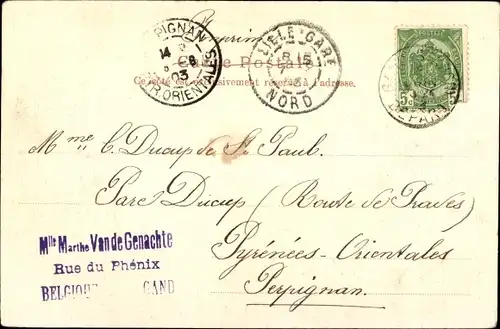 Imprimé
PIGNAN
14
8
03
PYR. ORIENTALES
LILLE-GARE
8 15
3
NORD
5
DEPART
Carte Postale
Ce côté est exclusivement réservé à l'adresse.
Mme C. Ducup de St Paul.
Parc Ducup (Route de Prades)
Pyrénées-Orientales
Perpignan.
Mlle Marthe Van de Genachte
Rue du Phénix
BELGIQUE GAND